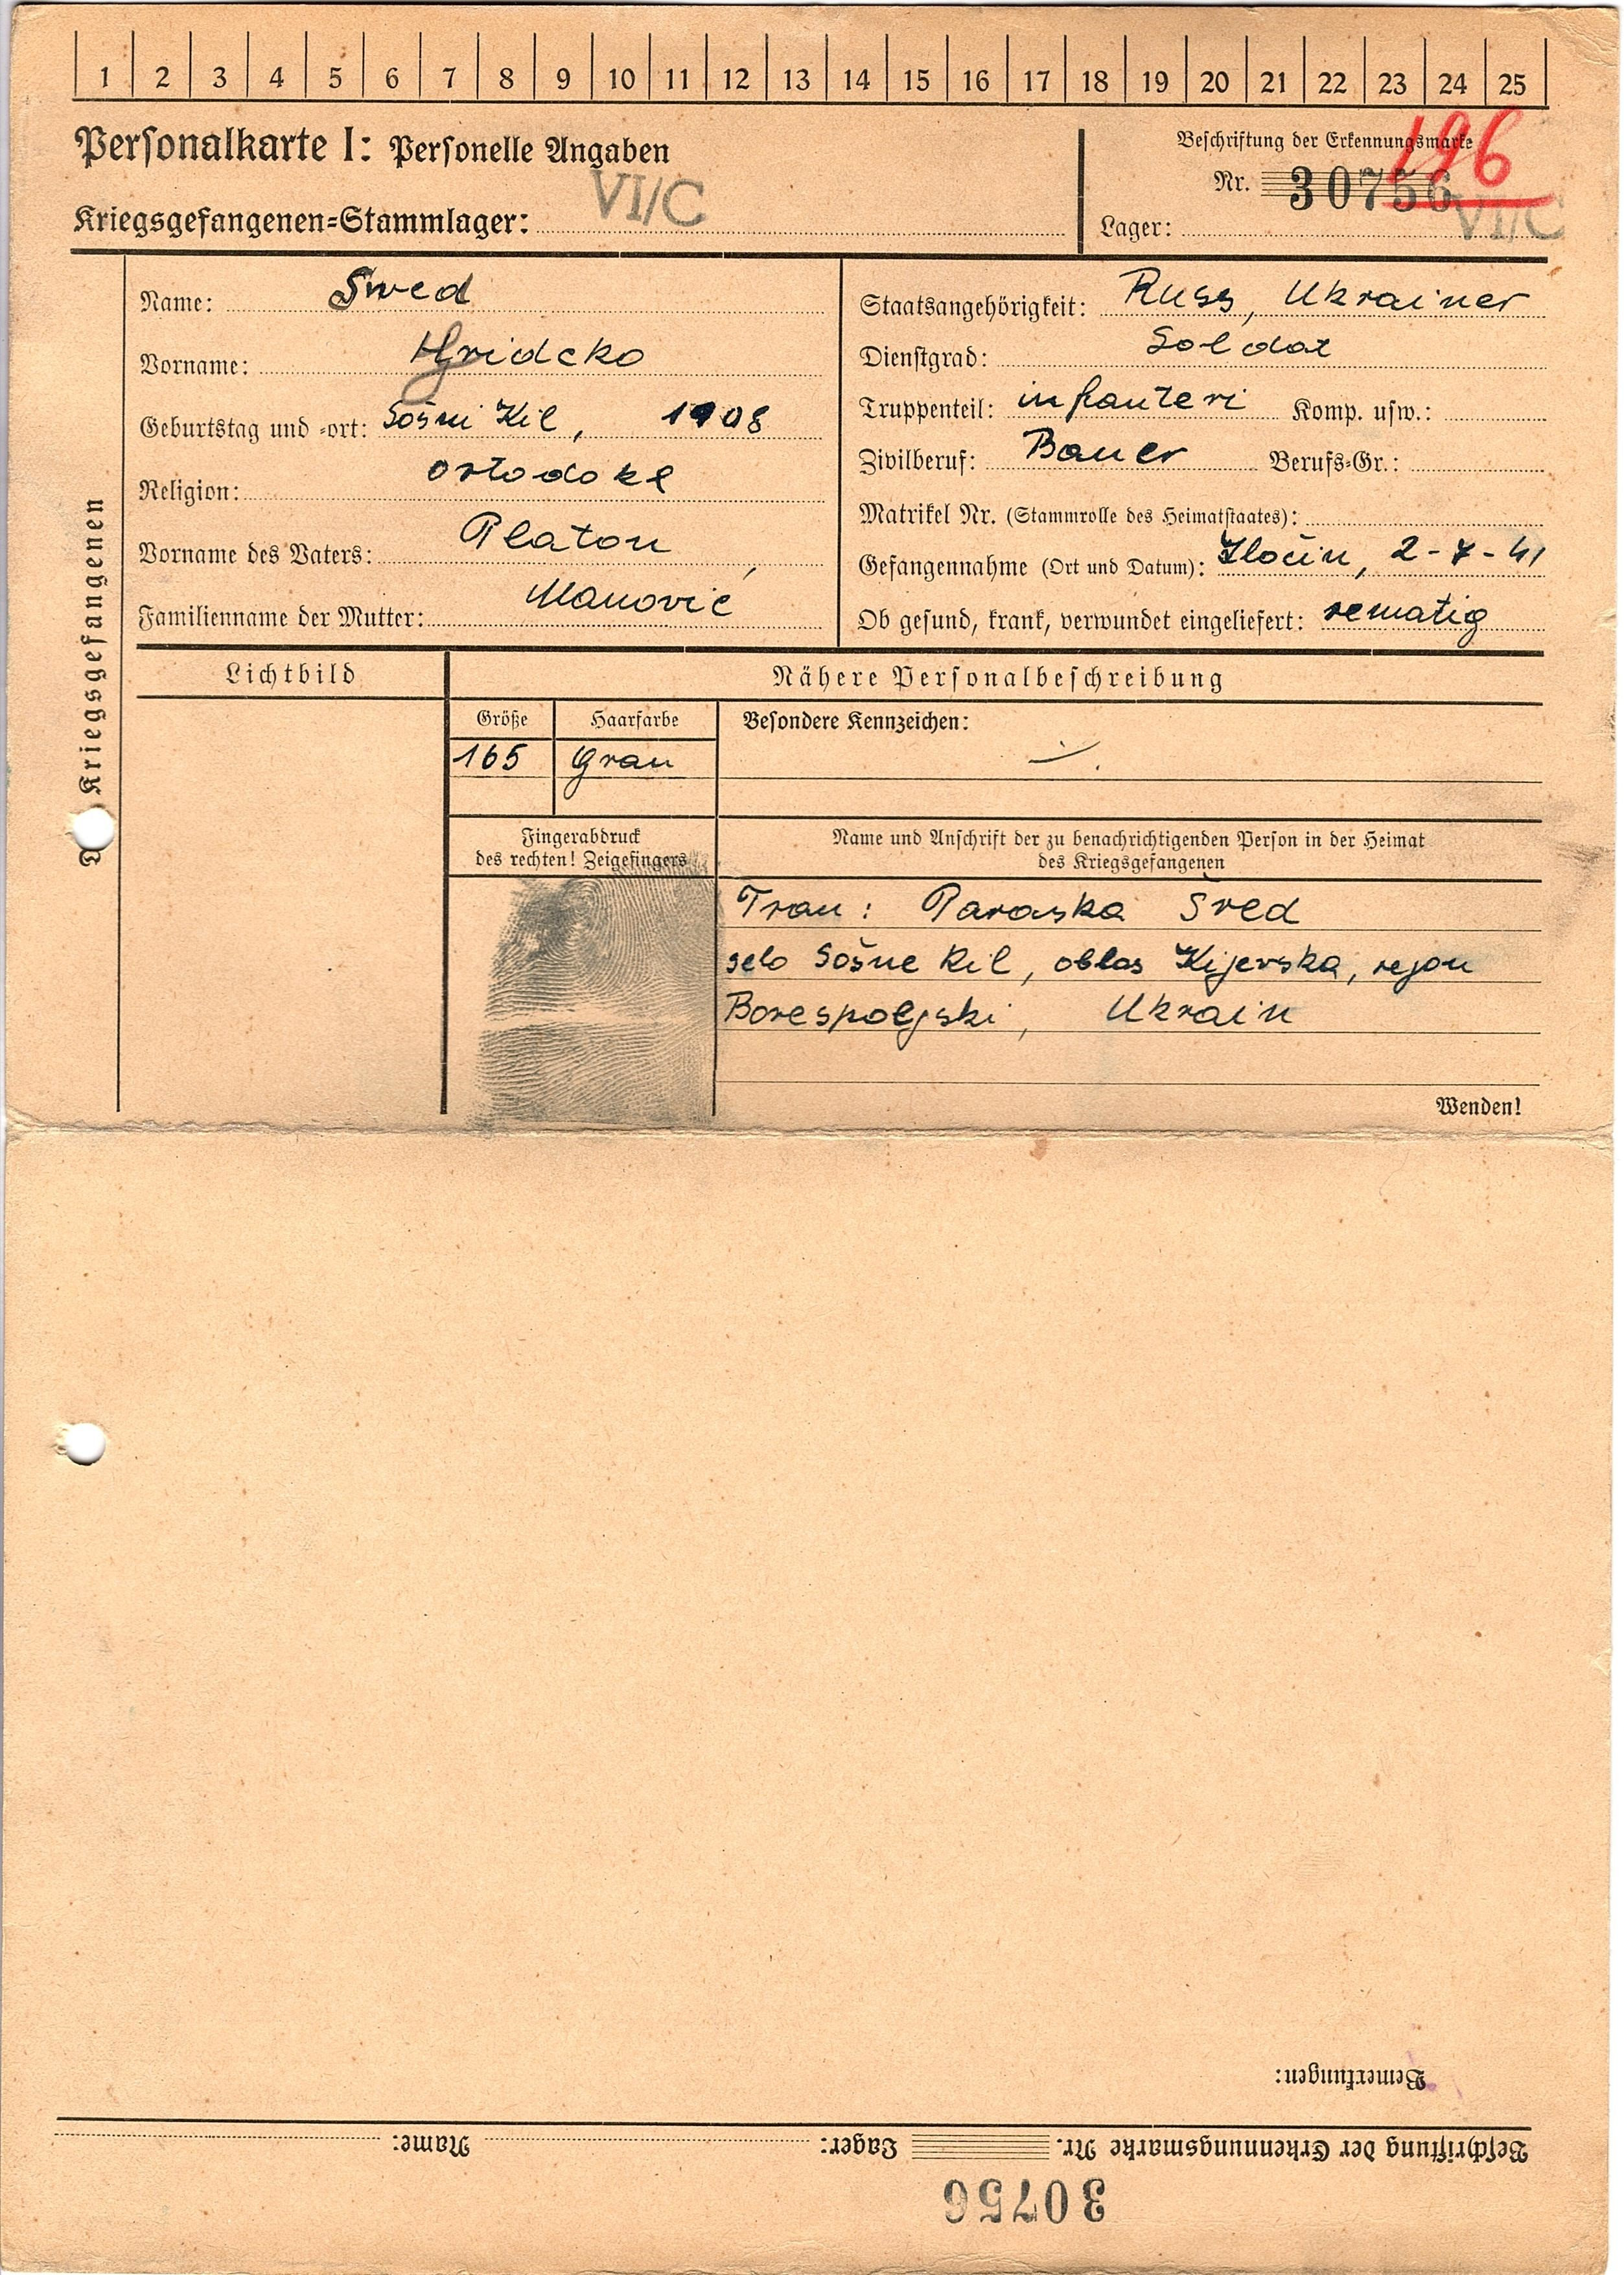 1 2 3 4 5 6 7 8 9 10 11 12 13 14 15 16 17 18 19 20 21 22 23 24 25
Personalkarte I: Personelle Angaben
Kriegsgefangenen=Stammlager: VI/C
Beschriftung der Erkennungsmarke
196
Nr. 30756
Lager: VI/C
Kriegsgefangenen
Name: Swed
Vorname: Hridcko
Geburtstag und =ort: Sošni Kil, 1908
Religion: ortodoks
Vorname des Vaters: Platon
Familienname der Mutter: Manovič
Staatsangehörigkeit: Russ, Ukrainer
Dienstgrad: Soldat
Truppenteil: infanteri Komp. usw.:
Zivilberuf: Bauer Berufs=Gr.:
Matrikel Nr. (Stammrolle des Heimatstaates):
Gefangennahme (Ort und Datum): Zločin, 2-7-41
Ob gesund, krank, verwundet eingeliefert: rematig
Lichtbild
Nähere Personalbeschreibung
Größe Haarfarbe Besondere Kennzeichen:
165 Grau
Fingerabdruck
des rechten! Zeigefingers
Name und Anschrift der zu benachrichtigenden Person in der Heimat
des Kriegsgefangenen
Frau: Paraska Šved
selo Sošne Kil, oblas Kijevska, rejon
Borespoljski, Ukrain
Wenden!
Bemerkungen:
Beschriftung der Erkennungsmarke Nr. Lager: Name:
30756